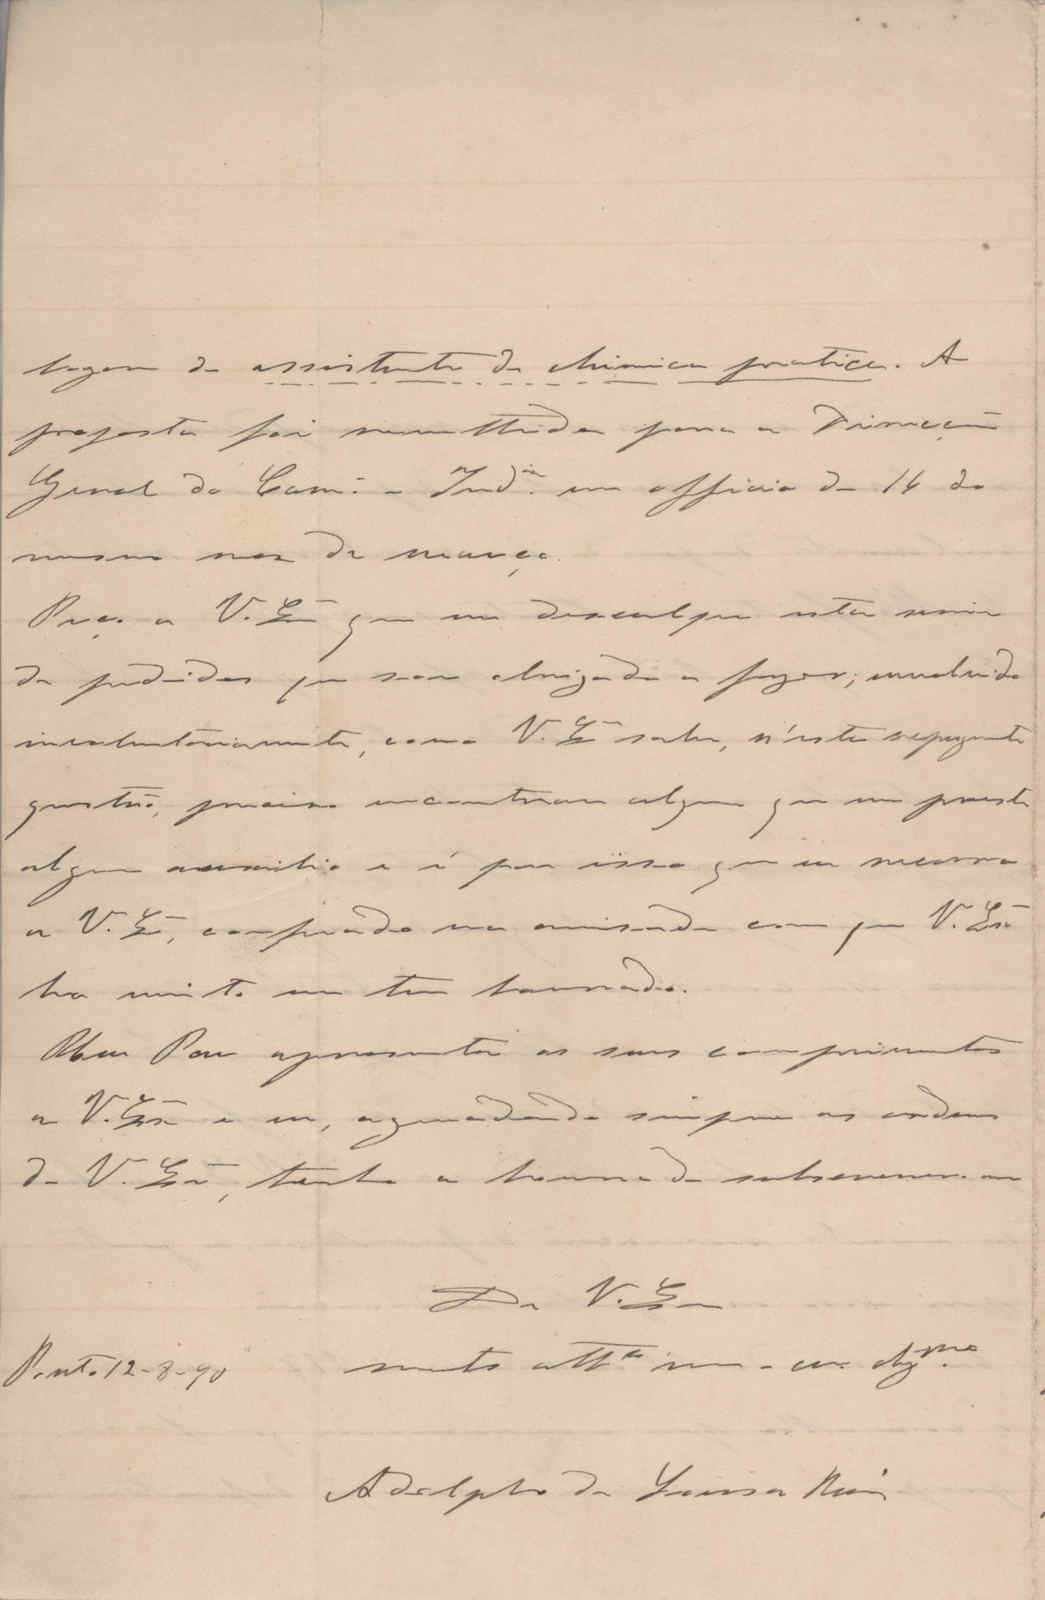 logar de assistente de chimica pratica. A
proposta foi remettida para a Direcção
Geral do Com. e Ind.ia em officio de 14 do
mesmo mez de março.
Peço a V. Exa que me desculpe esta serie
de pedidos que sou obrigado a fazer; envolvido
involuntariamente, como V. Exa sabe, n'esta repugnante
questão, preciso encontrar alguem que me preste
algum auxilio e é por isso que eu recorro
a V. Exa, confiado na amisade com que V. Exa
ha muito me tem honrado.
Meu Pae apresenta os seus comprimentos
a V. Exa e eu, aguardando sempre as ordens
de V. Exa, tenho a honra de subscrever-me
De V. Exa
Porto 12-8-90 muito att.to ven. e cr. obg.mo
Adolpho de Sousa Reis